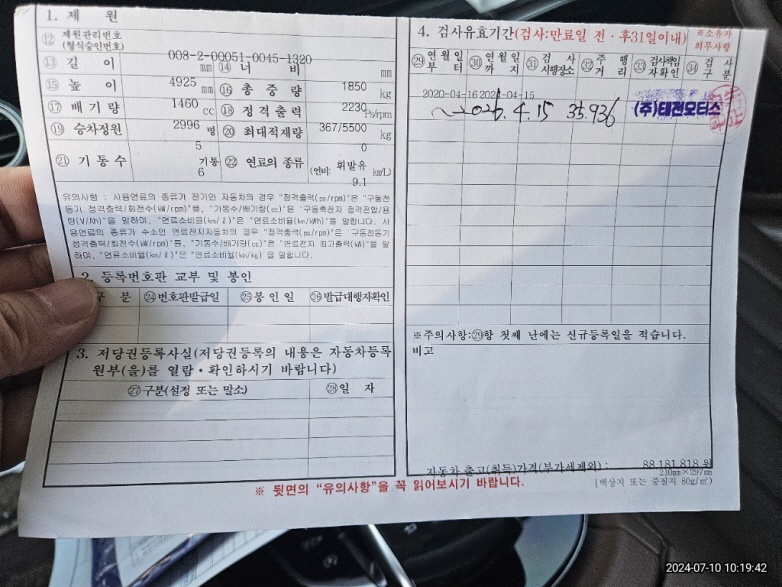 1. 제 원
⑫ 제원관리번호
(형식승인번호)
008-2-00051-0045-1320
⑬ 길 이 mm ⑭ 너 비 mm
4925 1850
⑮ 높 이 mm ⑯ 총 중 량 kg
1460 2230
⑰ 배 기 량 cc ⑱ 정 격 출 력 Ps/rpm
2996 367/5500
⑲ 승차정원 명 ⑳ 최대적재량 kg
5 0
㉑ 기 통 수 기통 ㉒ 연료의 종류 휘발유
6 (연비: km/L)
9.1
유의사항 : 사용연료의 종류가 전기인 자동차의 경우 "정격출력(ps/rpm)"은 "구동전
동기 정격출력/회전수(kW/rpm)"를, "기통수/배기량(cc)"은 "구동축전지 정격전압/용
량(V/Ah)"을 말하며, "연료소비율(km/ℓ)"은 "연료소비율(km/kWh)"을 말합니다. 사
용연료의 종류가 수소인 연료전지자동차의 경우 "정격출력(ps/rpm)"은 "구동전동기
정격출력/회전수(kW/rpm)"를, "기통수/배기량(cc)"은 "연료전지 최고출력(kW)"을 말
하며, "연료소비율(km/ℓ)"은 "연료소비율(km/kg)"을 말합니다.
2. 등록번호판 교부 및 봉인
구 분 ㉔번호판발급일 ㉕봉 인 일 ㉖발급대행자확인
3. 저당권등록사실(저당권등록의 내용은 자동차등록
원부(을)를 열람·확인하시기 바랍니다)
㉗구분(설정 또는 말소) ㉘일 자
4. 검사유효기간(검사:만료일 전·후31일이내) ※소유자
의무사항
㉙연 월 일
부 터
㉚연 월 일
까 지
㉛검 사
시행장소
㉜주 행
거 리
㉝검사책임
자확인
㉞검 사
구 분
2020-04-16 2024-04-15
~ 2026. 4. 15 35,936 (주)태전모터스
※주의사항:㉙항 첫째 난에는 신규등록일을 적습니다.
비고
자동차 출고(취득)가격(부가세제외) : 88,181,818 원
210mm×297mm
[백상지 또는 중질지 80g/㎡]
※ 뒷면의 "유의사항"을 꼭 읽어보시기 바랍니다.
2024-07-10 10:19:42